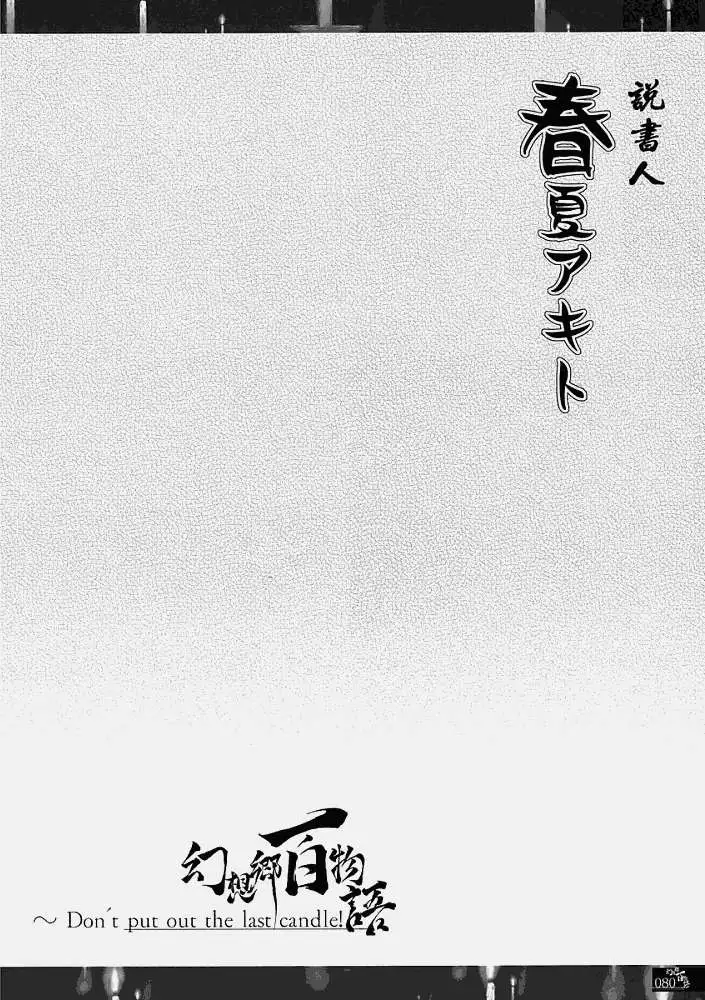 説書人
春夏アキト
幻想郷百物語
～ Don't put out the last candle!
080